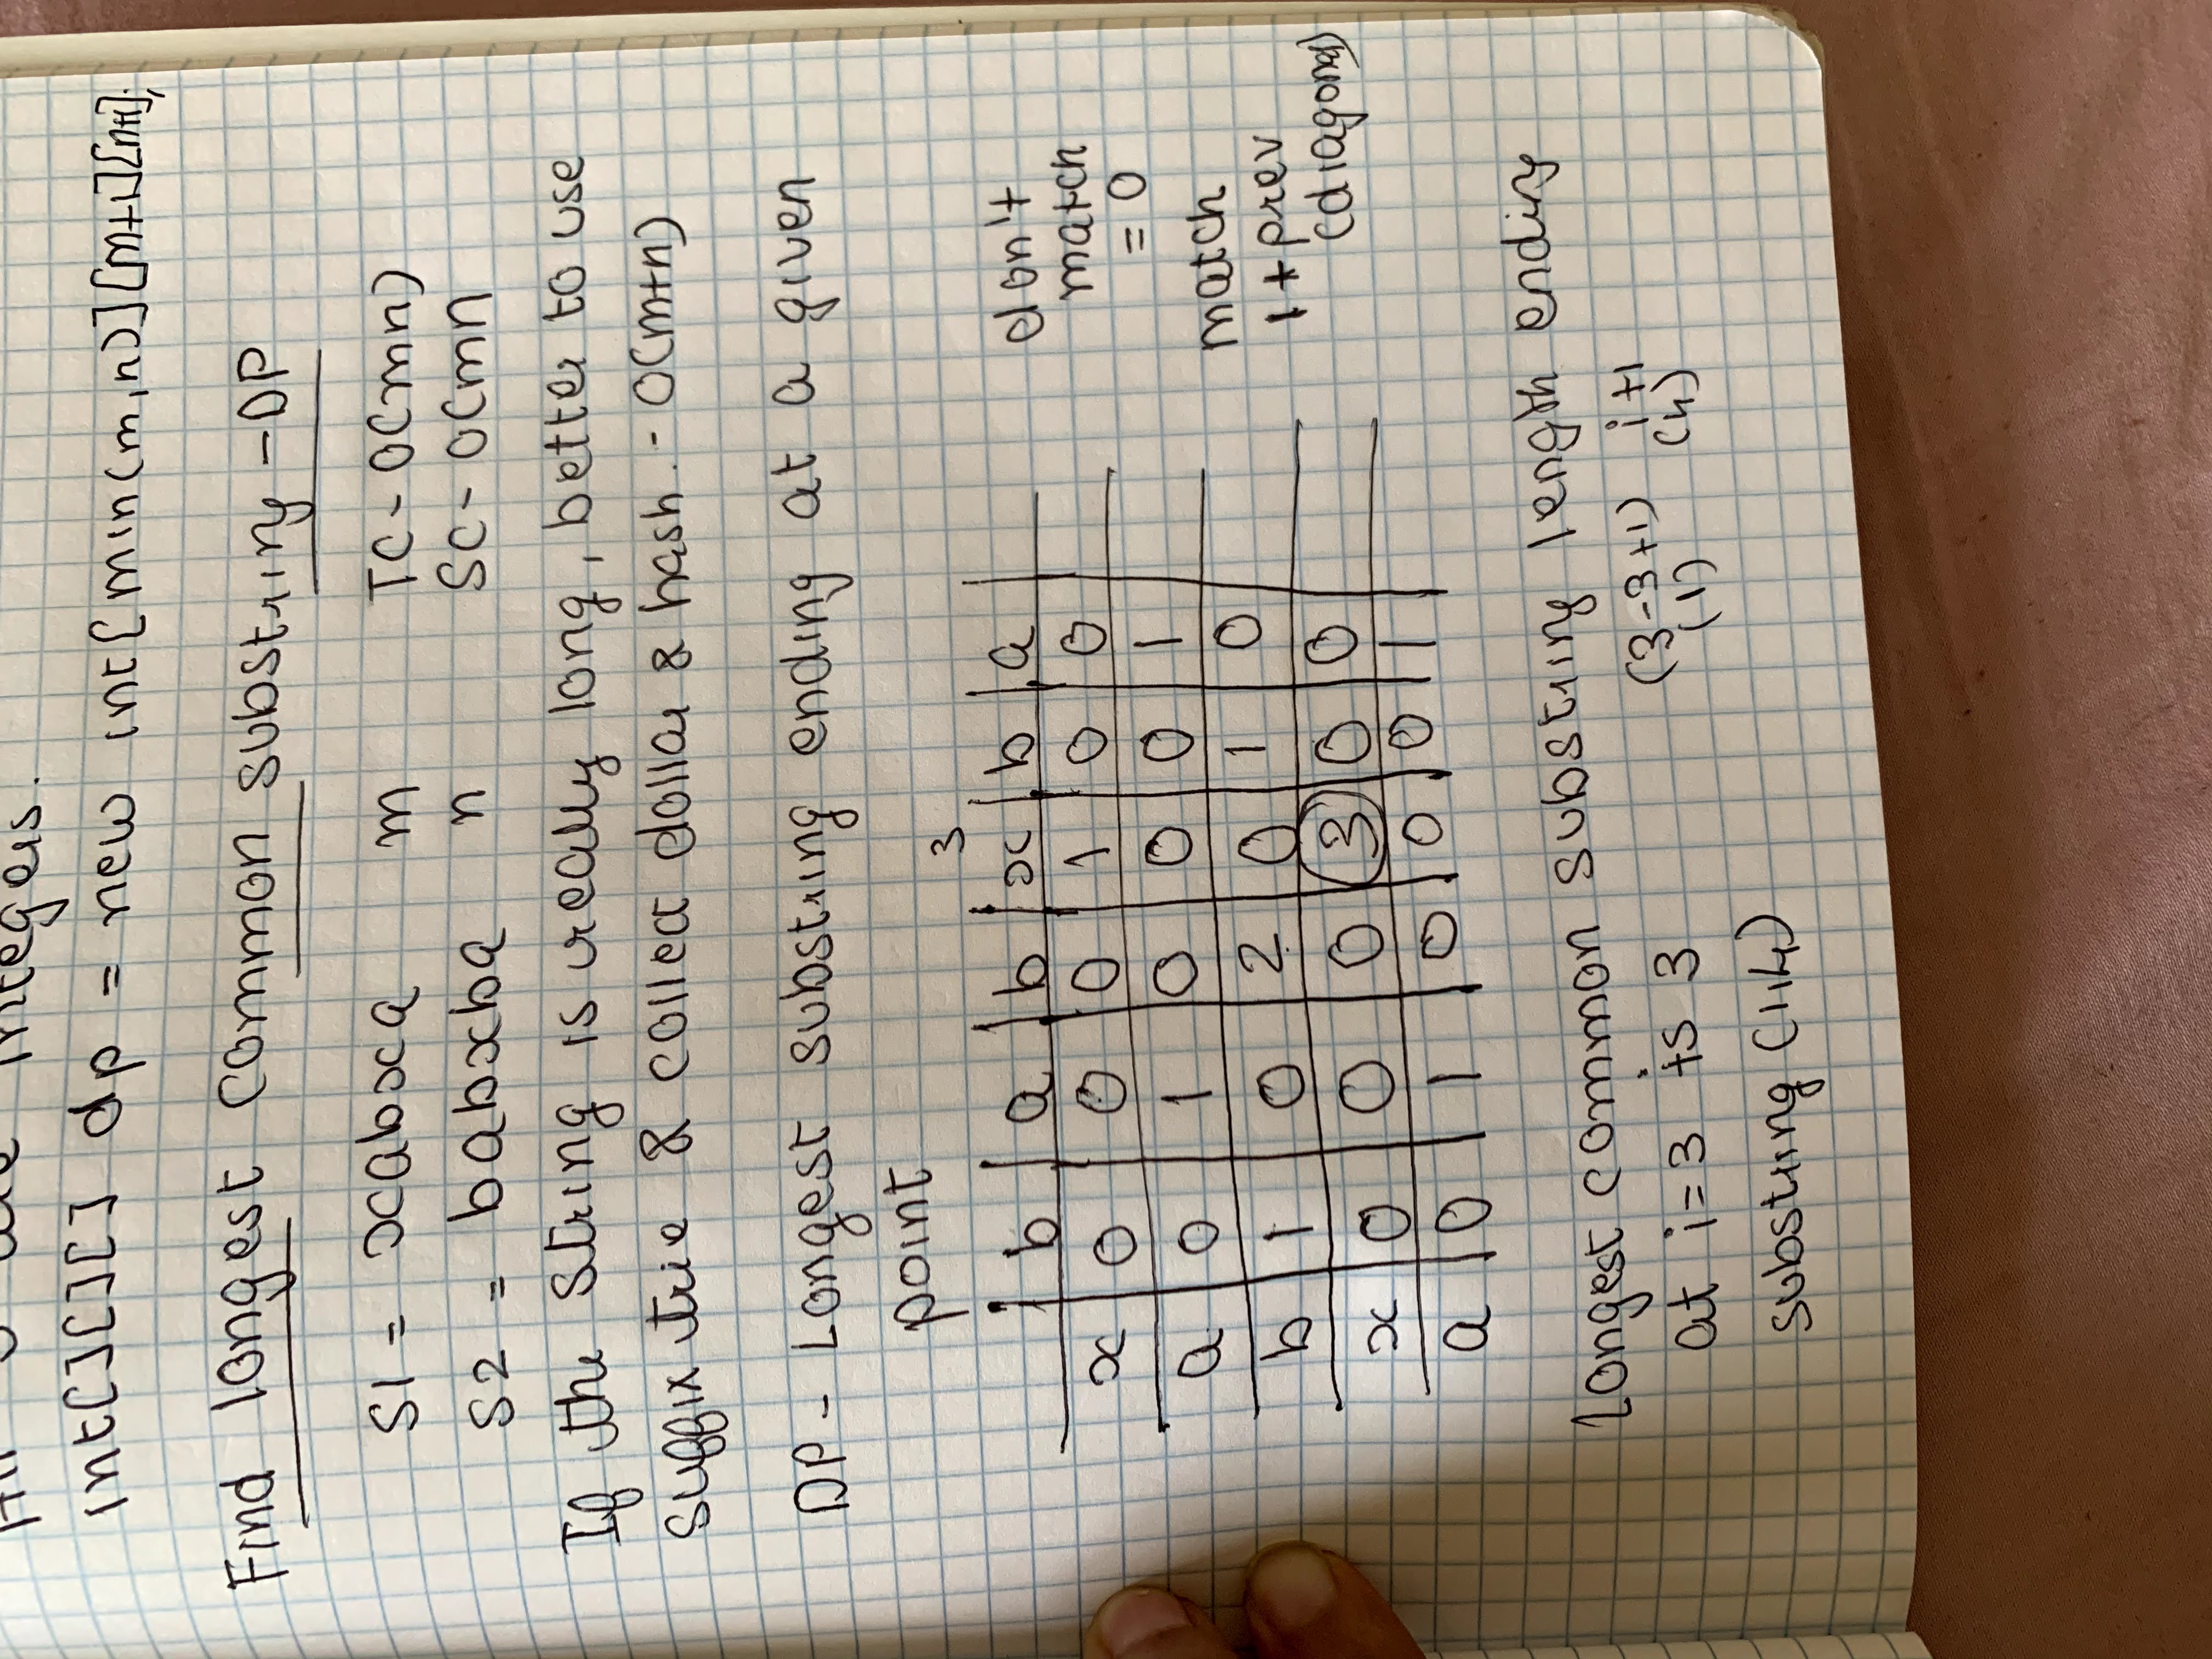 are integers.
int[][][] dp = new int[min(m,n)][m+1][n+1];
Find longest common substring - DP
S1 = xabxa m TC - O(mn)
S2 = babxba n SC - O(mn
If the string is really long, better to use
suffix trie & collect dollar & hash. - O(m+n)
DP - Longest substring ending at a given
point
3
b a b x b a
x 0 0 0 1 0 0
a 0 1 0 0 0 1
b 1 0 2 0 1 0
x 0 0 0 3 0 0
a 0 1 0 0 0 1
don't
match
= 0
match
1 + prev
(diagonal)
Longest common substring length ending
at i=3 is 3 (3-3+1) i+1
(1) (4)
substring (1,4)